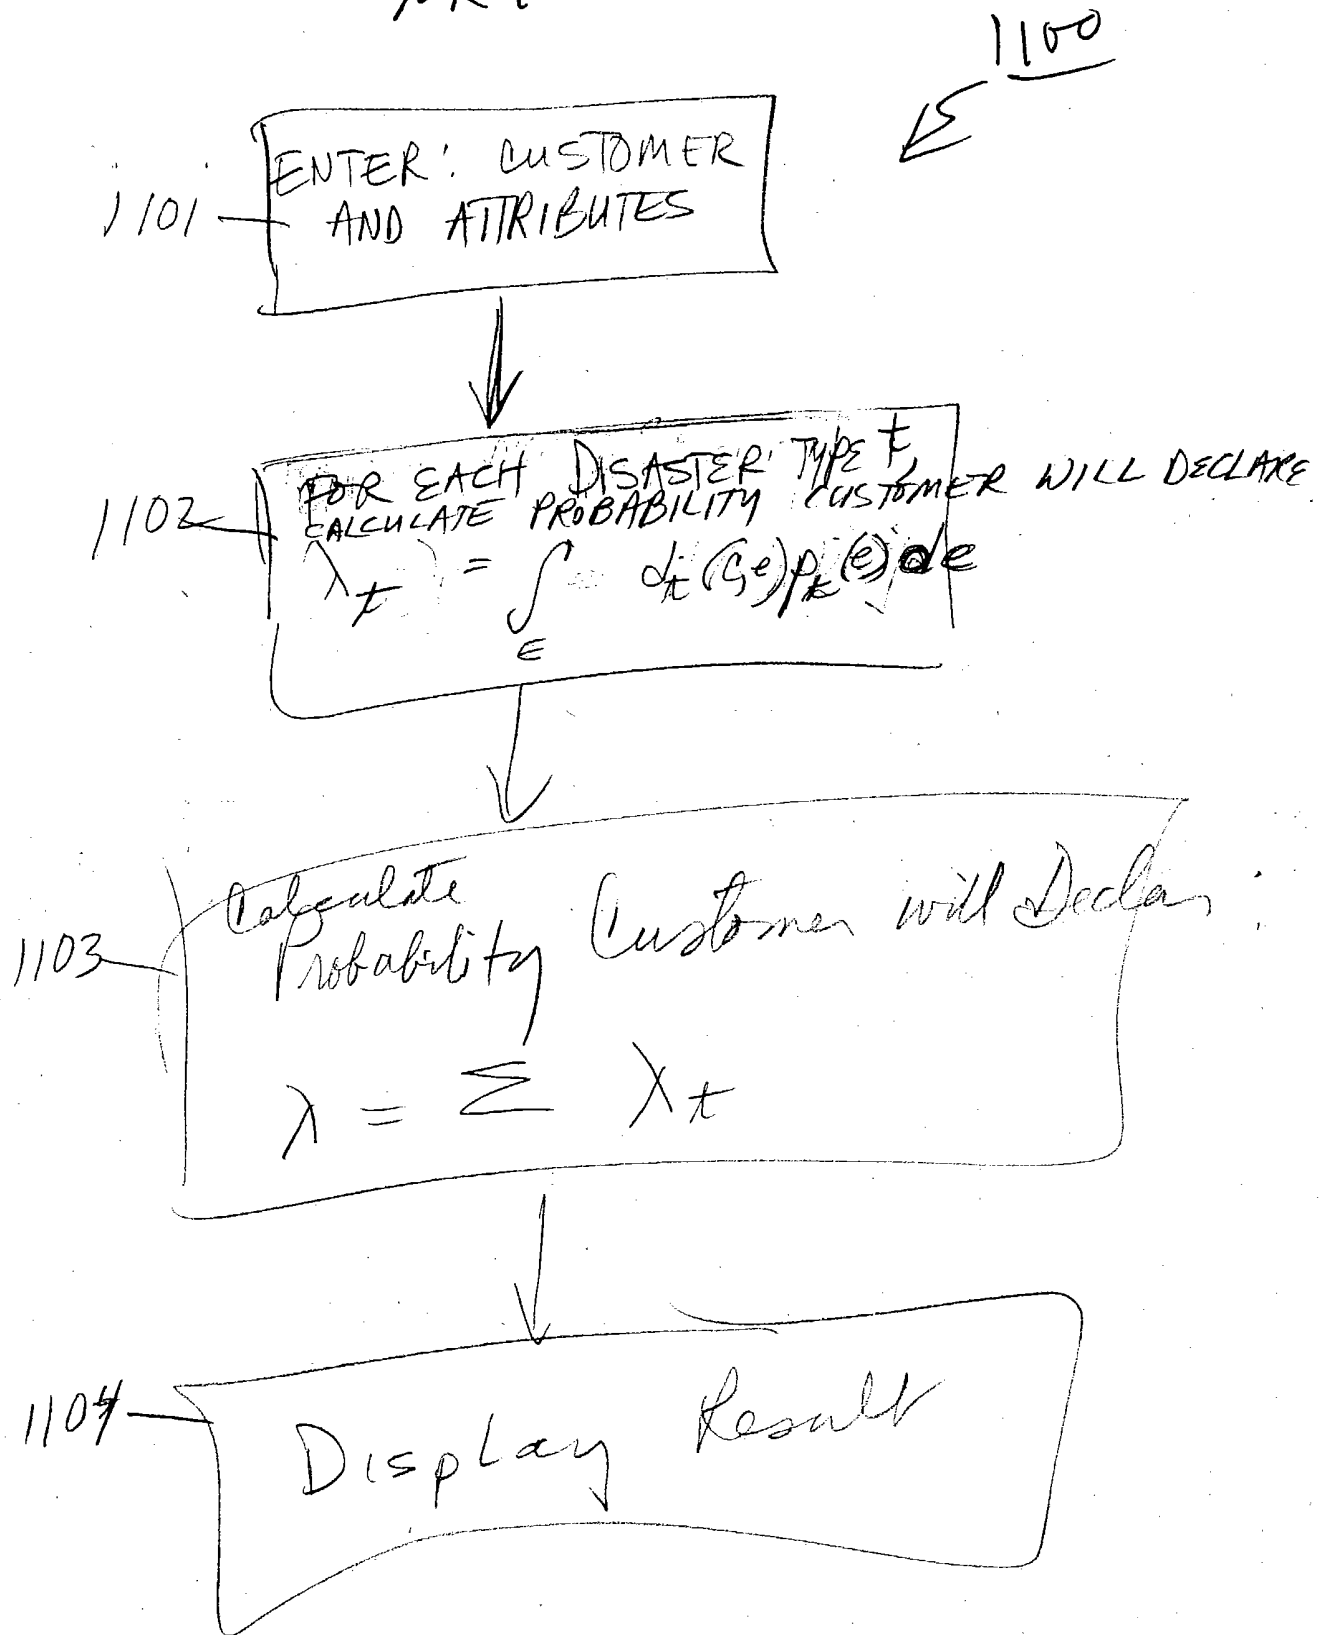 1100
1101
ENTER: CUSTOMER
AND ATTRIBUTES
1102
FOR EACH DISASTER TYPE t,
CALCULATE PROBABILITY CUSTOMER WILL DECLARE
λt = ∫E dt(C,e)pt(e)de
1103
Calculate
Probability Customer will Declare:
λ = Σ λt
1104
Display Result